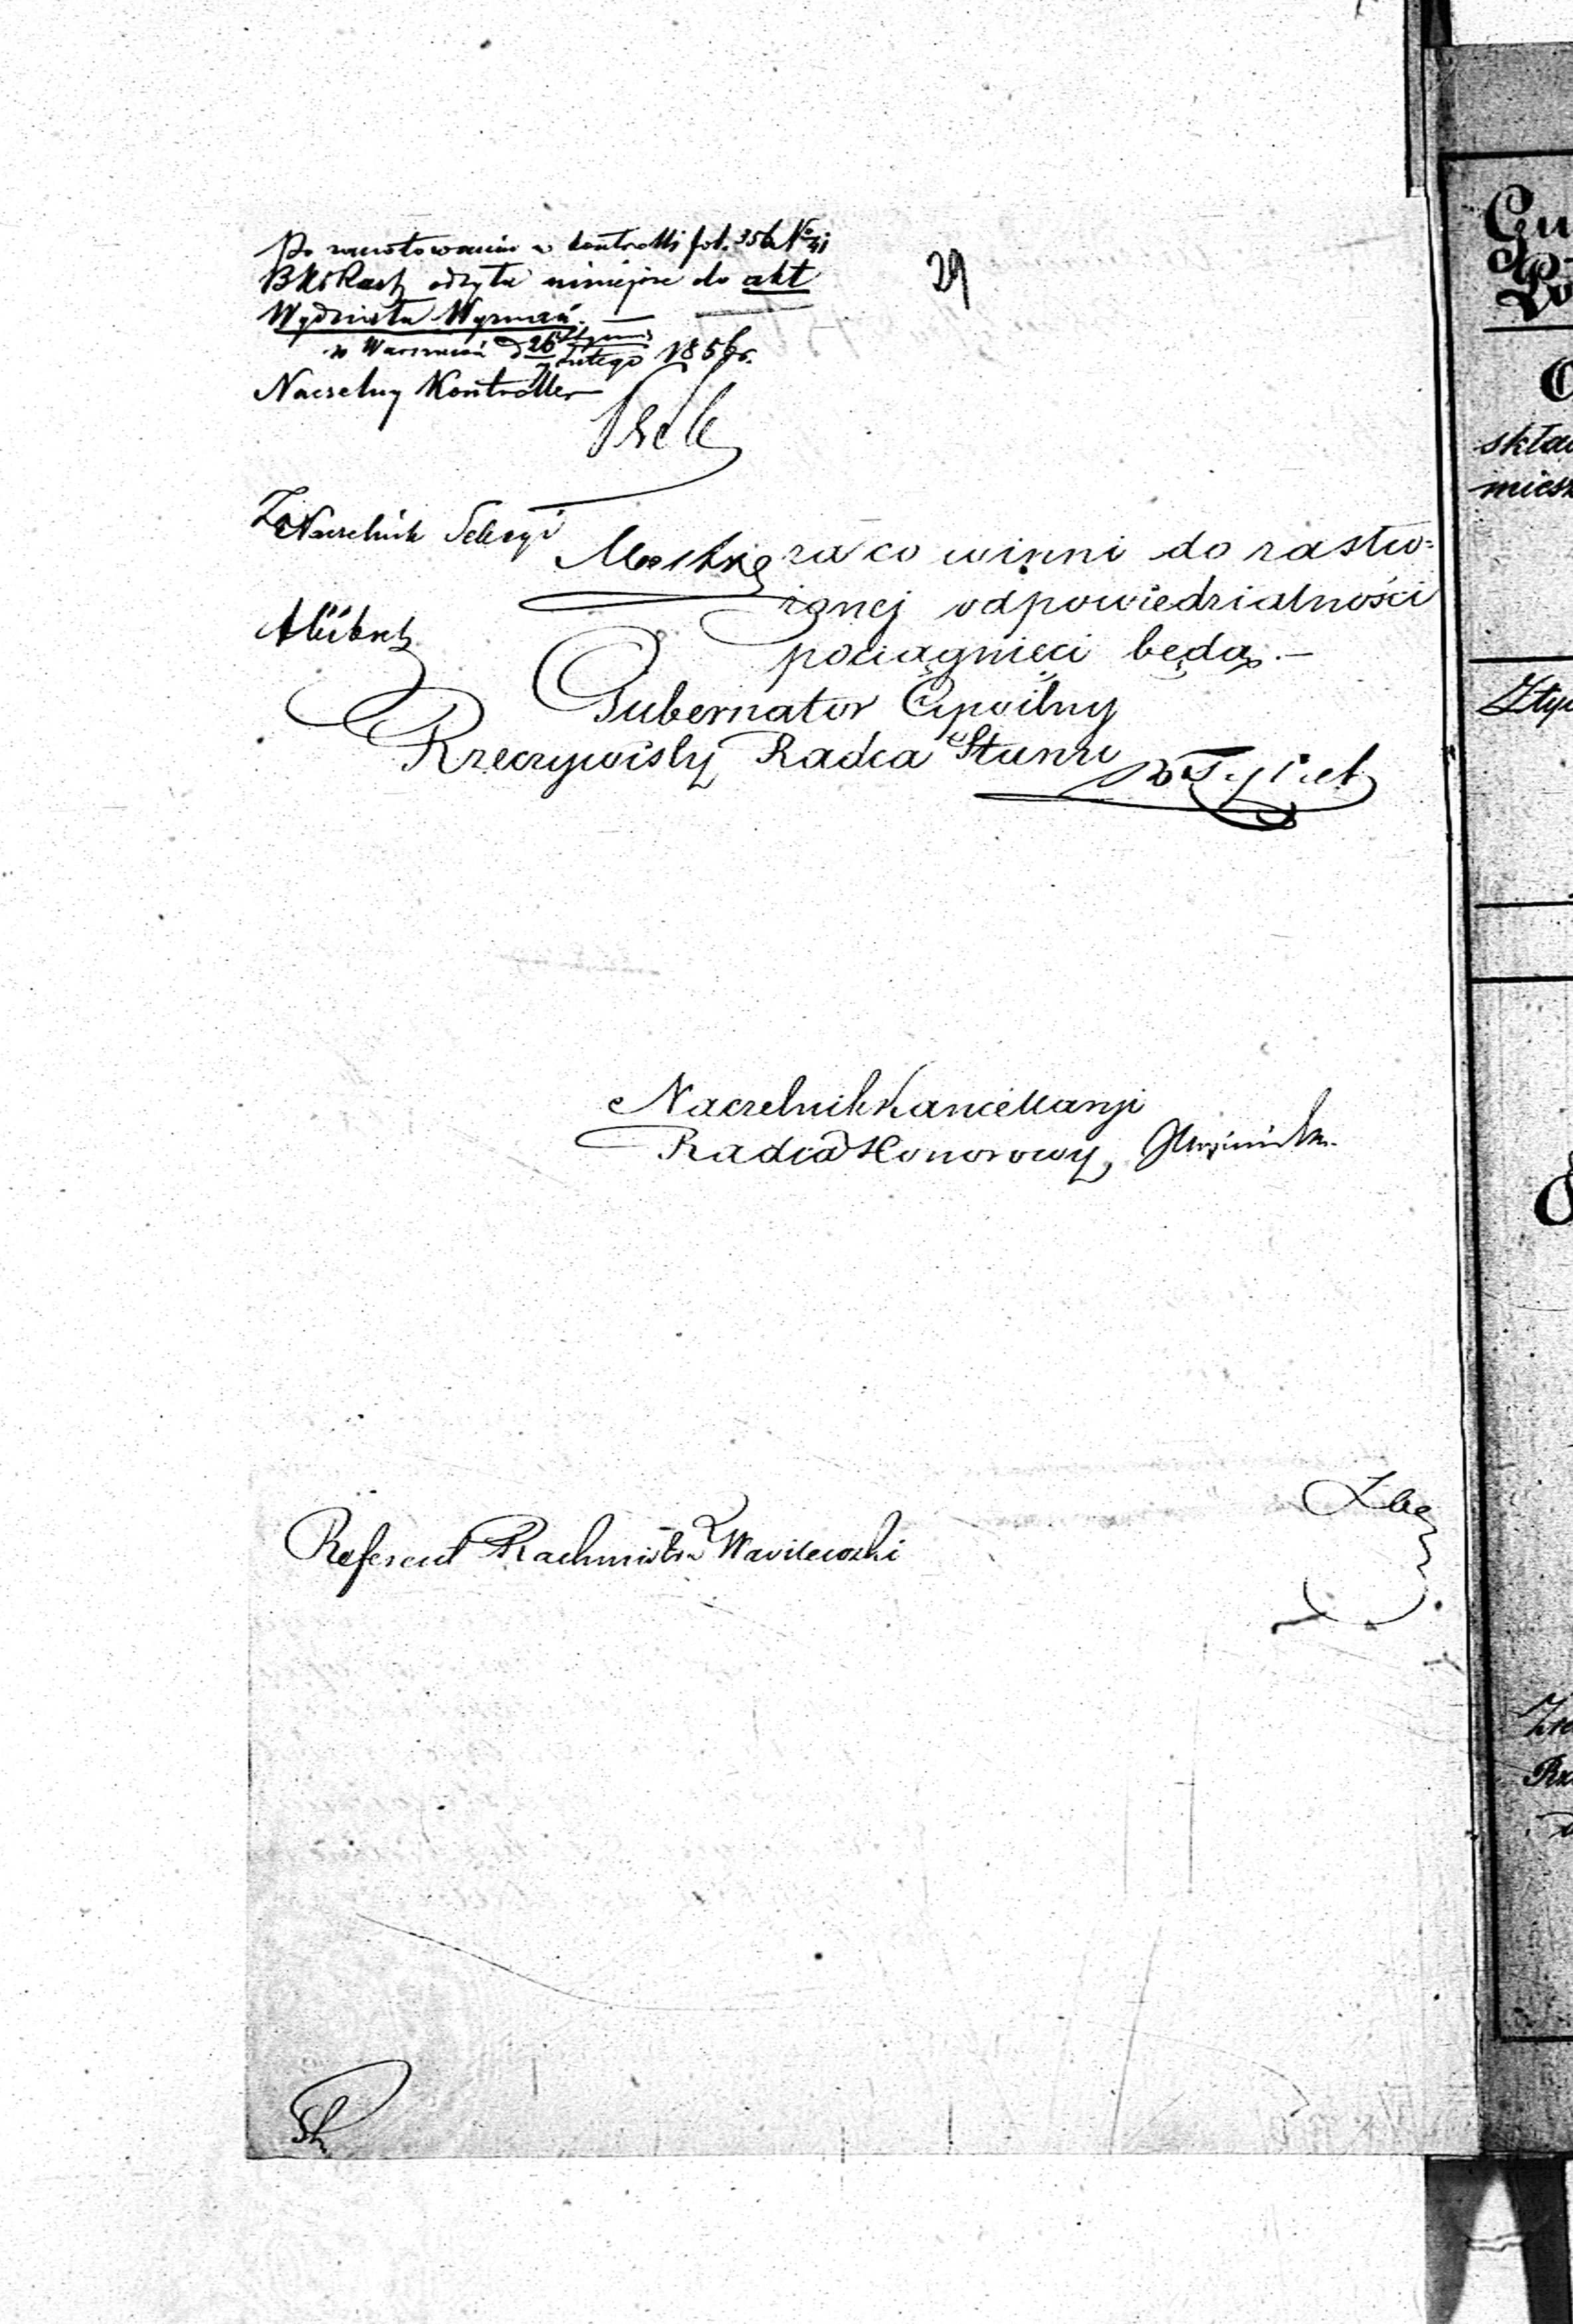 Po zanotowaniu w kontrolli fol. 356 No 41
odsyła niniejsze do akt
Wydziału Wyznań.
w Warszawie d 26 Stycznia
7 Lutego 1856 r.
Naczelny Kontroller
29
Za Naczelnik Sekcyi
za co winni do zastó=
zonej odpowiedzialności
pociągnieci będą.—
Gubernator Cywilny
Rzeczywisty Radca Stanu
Naczelnik Kancellaryi
Radca Honorowy,
Referent Rachmistrz Wasilewski